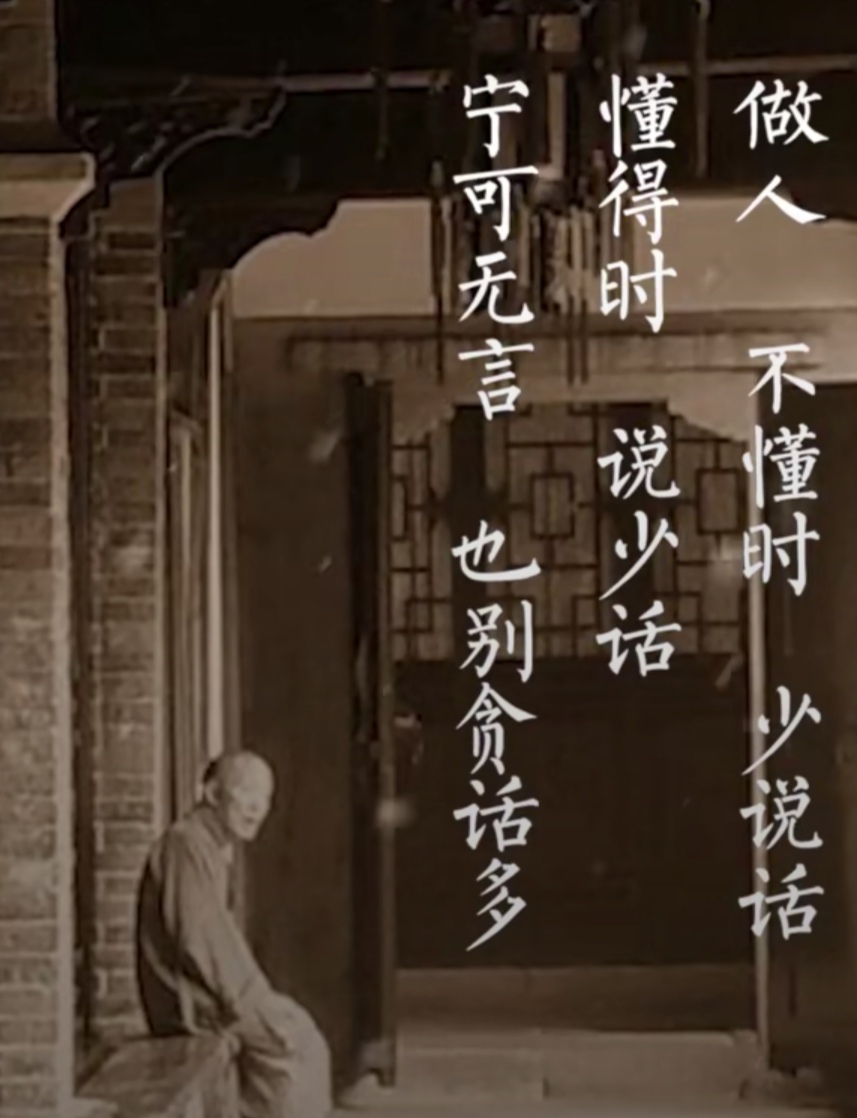 做人 不懂时 少说话
懂得时 说少话
宁可无言 也别贪话多